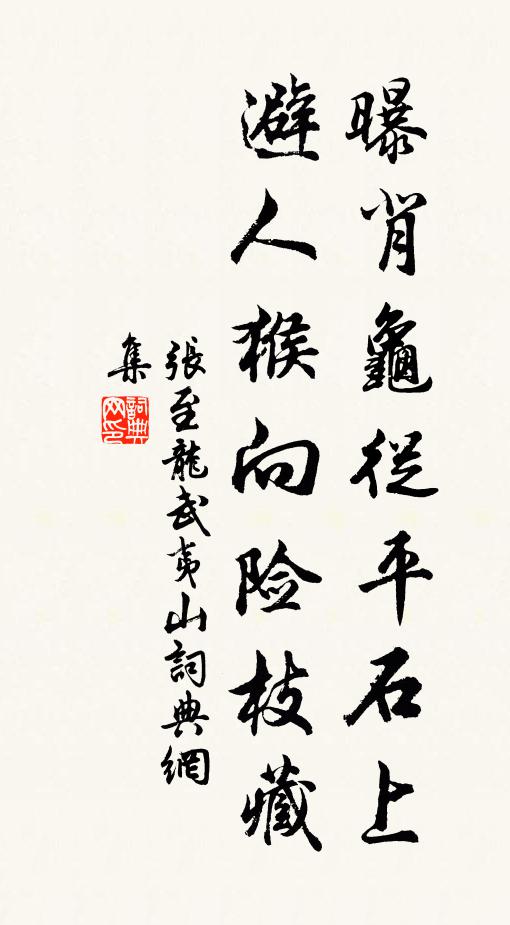 曝背龜從平石上
避人猴向险枝藏
張至龍武夷山詞典網
集
詞典
网印